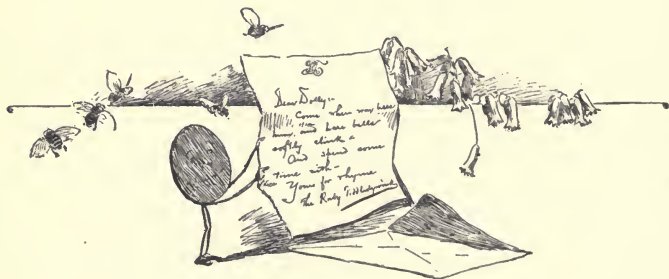 Dear Dolly:-
Come when wax bees
hum, and hare bells
softly clink -
And spend some
time with -
Yours for rhyme
The Ruby T.